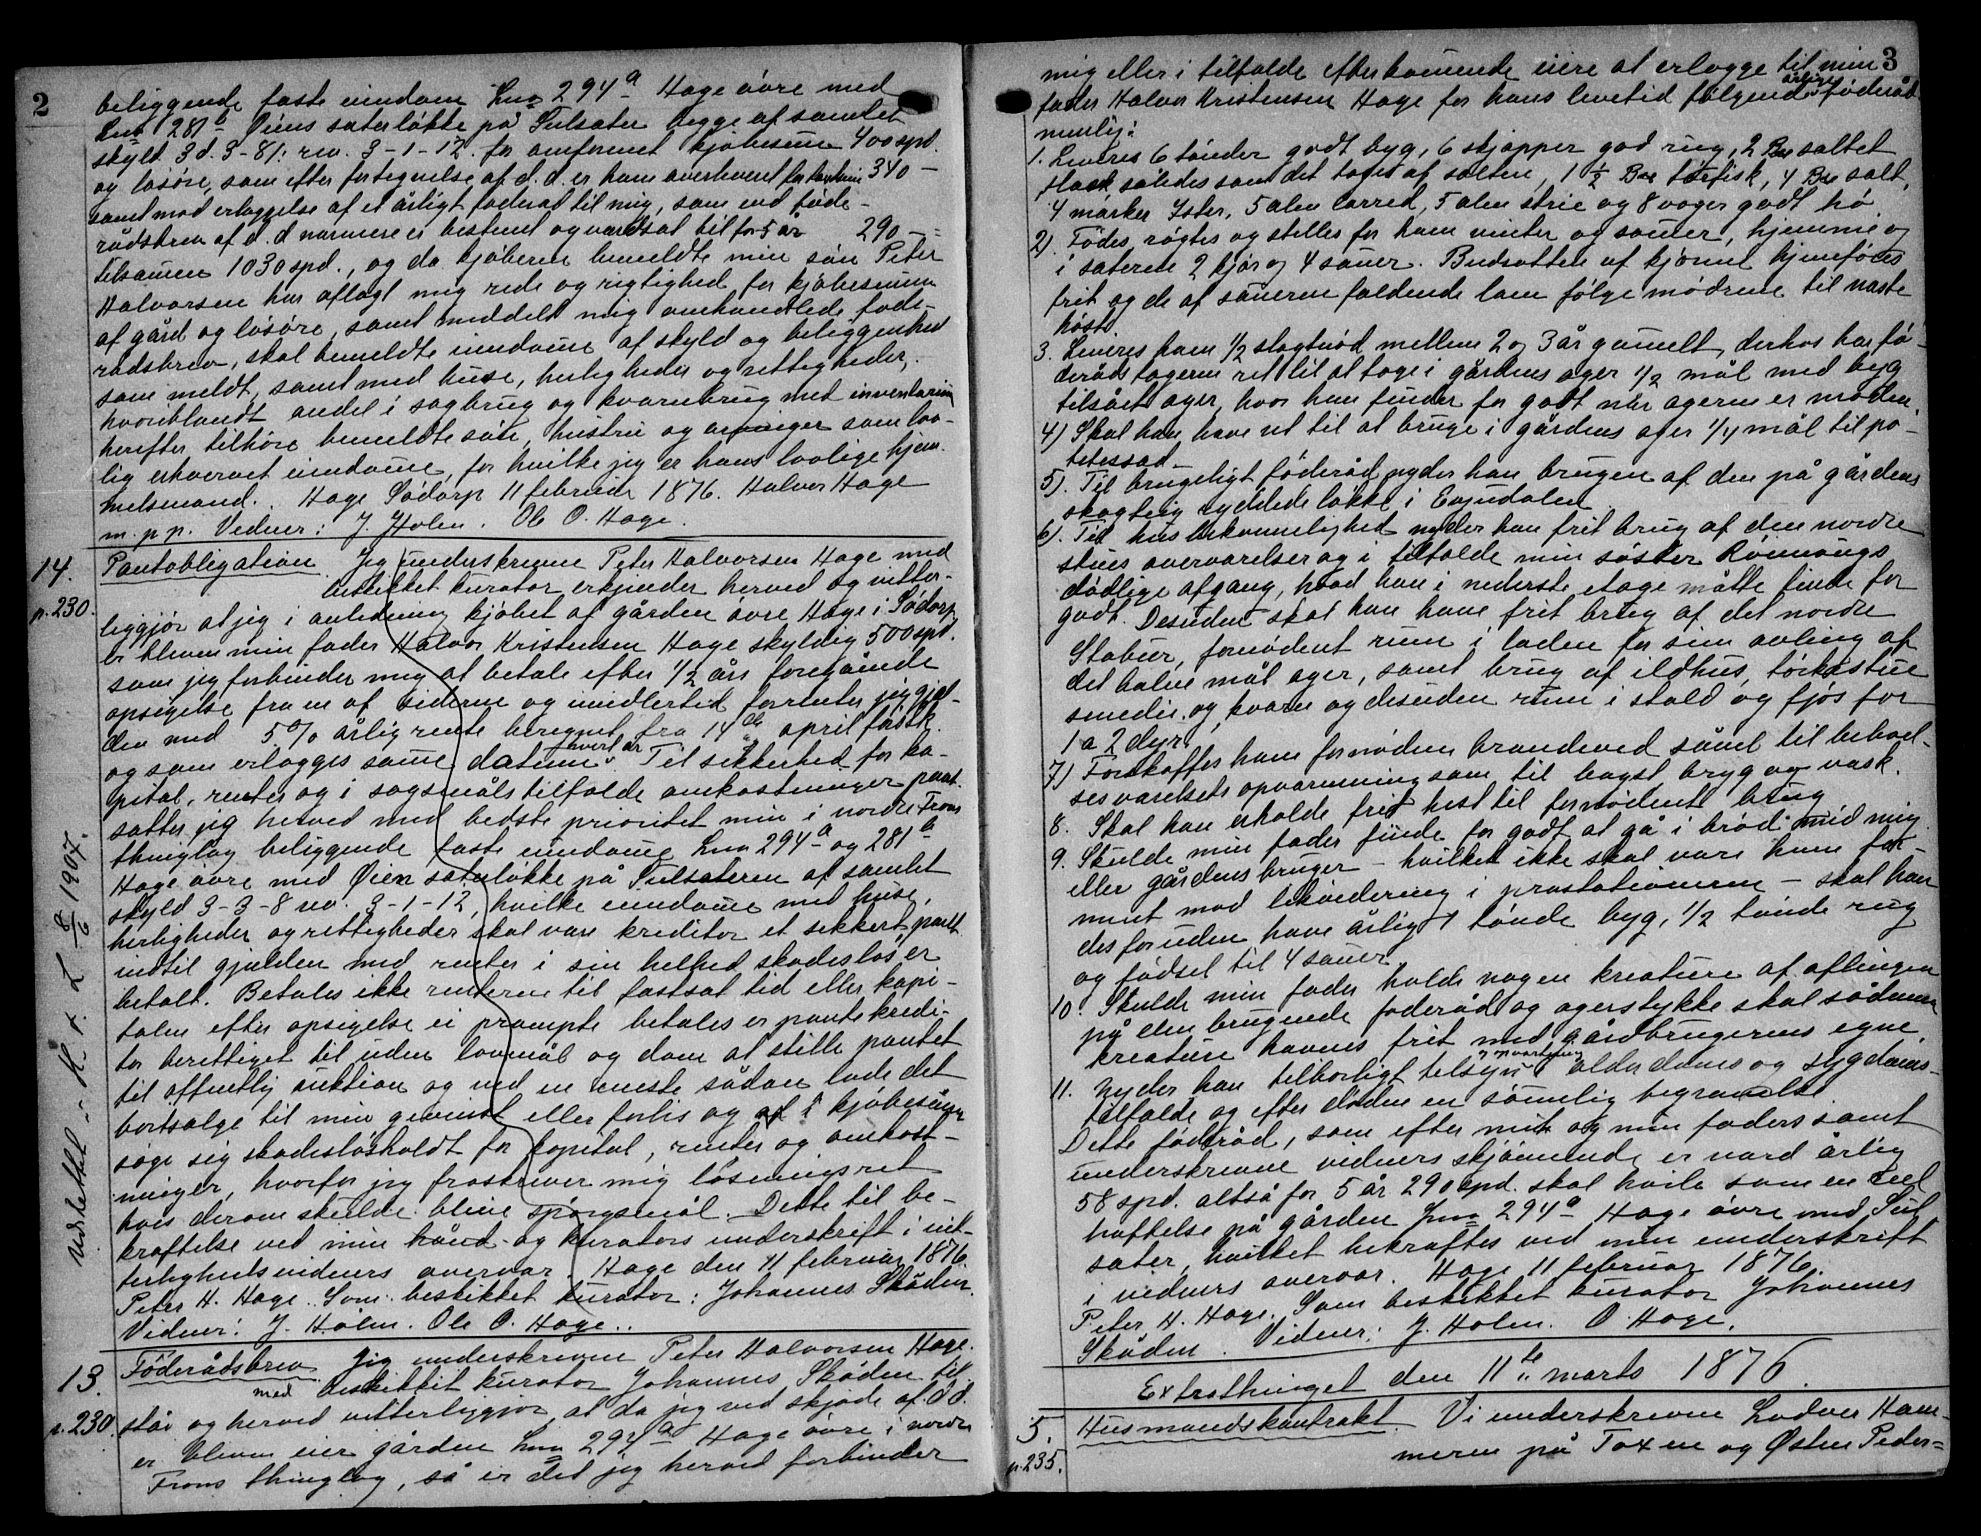 2
beliggende faste eiendom Lno 294a Hage övre med
Lno 281b Öiens sæterlökke på Sulsæter begge af samlet
skyld 3d. 3-8/: rev. 3-1-12. for omforenet kjöbesum 400 spd.
og lösöre, som efter fortegnelse af d. d. er ham overdraget for 340 —
samt mod erlæggelse af et årligt föderåd til mig, som ved föde-
rådsbrev af d. d nærmere er bestemt og værdsat til for 5 år 290 —
tilsammen 1030 spd., og da kjöberen bemeldte min sön Peter
Halvorsen har aflagt mig rede og rigtighed for kjöbesummen
af gård og lösöre, samt meddelt mig omhandlede föde-
rådsbrev, skal bemeldte eiendomme af skyld og beliggenhed
som meldt, samt med huse, herligheder og rettigheder,
hvoriblandt andel i sagbrug og kværnbrug med inventarium
herefter tilhöre bemeldte sön, hustru og arvinger som lov-
lig erhvervet eiendomme, for hvilke jeg er hans lovlige hjem-
melsmand. Hage Södorp 11 februar 1876. Halvor Hage
m. p. p. Vidner: J. Holen. Ole O. Hage.
14.
p. 230.
Pantobligation. Jeg underskrevne Peter Halvorsen Hage med
beskikket kurator erkjender herved og vitter-
liggjör at jeg i anledning kjöbet af gården övre Hage i Södorp
er bleven min fader Halvor Kristensen Hage skyldig 500 spd.
som jeg forbinder mig at betale efter 1/2 års foregående
opsigelse fra en af siderne og imidlertid forrenter jeg gjæl-
den med 5% årlig rente beregnet fra 14de april först k.
og som erlægges samme datum hvert år. Til sikkerhed for ka-
pital, renter og i sögsmåls tilfælde omkostninger pant-
sætter jeg herved med bedste prioritet min i nordre Frons
thinglag beliggende faste eiendomme Lno 294a og 281b
Hage övre med Öien sæterlökke på Sulsæteren af samlet
skyld 3-3-8 rev. 3-1-12, hvilke eiendomme med huse,
herligheder og rettigheder skal være kreditor et sikkert pant
indtil gjælden med renter i sin helhed skadeslös er
betalt. Betales ikke renterne til fastsat tid eller kapi-
talen efter opsigelse ei prompte betales er pantekredi-
tor berettiget til uden lovmål og dom at stille pantet
til offentlig auktion og ved en eneste sådan lade det
bortsælge til min gevinst eller forlis og af kjöbesummen
söge sig skadeslösholdt for kapital, renter og omkost-
ninger, hvorfor jeg fraskriver mig lösningsret
hvis derom skulde blive spörgsmål. Dette til be-
kræftelse ved min hånd- og kurators underskrift i vit-
terlighedsvidners overvær. Hage den 11 februar 1876.
Peter H. Hage. Som beskikket kurator: Johannes Skåden.
Vidner: J. Holen. Ole O. Hage..
Udslettet - M. r. L 8/6 1907.
13.
p. 230.
Föderådsbrev. Jeg underskrevne Peter Halvorsen Hage
med beskikket kurator Johannes Skåden til-
står og herved vitterliggjör at da jeg ved skjöde af d d.
er bleven eier gården Lno 294a Hage övre i nordre
Frons thinglag, så er det jeg herved forbinder
3
mig eller i tilfælde efterkommende eiere at erlægge til min
fader Halvor Kristensen Hage for hans levetid fölgende årlige föderåd
nemlig:
1. Leveres 6 tönder godt byg, 6 skjæpper god rug, 2 Bm saltet
flæsk således som det tages af salten, 1 1/2 Bm törfisk, 4 Bm salt,
4 marker Ister, 5 alen lærred, 5 alen strie og 8 voger godt hö.
2) Födes, rögtes og stelles for ham vinter og sommer, hjemme og
i sæterne 2 kjör og 4 sauer. Budsotten af kjörne hjemföres
frit og de af sauerne faldende lam fölge mödrene til næste
höst.
3. Leveres ham 1/2 slagtnöd mellem 2 og 3 år gammelt, derhos har fö-
derådstageren ret til at tage i gårdens ager 1/2 mål med byg
tilsået ager, hvor han finder for godt når ageren er moden.
4) Skal han have ret til at bruge i gårdens ager 1/4 mål til po-
tetessæd.
5). Til brugeligt föderåd nyder han brugen af den på gårdens
skogteig ryddede lökke i Espedalen
6). Til husbekvemmelighed nyder han frit brug af den nordre
stues overværelser og i tilfælde min söster Rönnougs
dödlige afgang, hvad han i nederste etage måtte finde for
godt. Desuden skal han have frit brug af det nordre
Stabur, fornödent rum i laden for sin avling af
det halve mål ager, samt brug af ildhus, törkestue
smedie, og kværn og desuden rum i stald og fjös for
1 a 2 dyr.
7) Forskaffes ham fornöden brændeved såvel til behol-
des værelsets opvarmning som til bagst bryg og vask.
8. Skal han erholde frit hest til fornödent brug
9. Skulde min fader finde for godt at gå i bröd med mig
eller gårdens bruger - hvilket ikke skal være ham for-
ment mod likvidering i præstationerne - skal han
desforuden have årlig 1 tönde byg, 1/2 tönde rug
og födsel til 4 sauer
10. Skulde min fader holde nogen kreature af avlingen
på den brugende föderåd og agerstykke skal sådanne
kreature havnes frit med gårdbrugerens egne.
11. Nyder han tilbörligt tilsyn og opvartning alderdoms og sygdoms-
tilfælde og efter döden en sömmelig begravelse
Dette föderåd, som efter mit og min faders samt
underskrevne vidners skjönnende er værd årlig
58 spd. altså for 5 år 290 spd. skal hvile som en reel
hæftelse på gården Lno 294a Hage övre med Sul-
sæter, hvilket bekræftes ved min underskrift
i vidners overvær. Hage 11 februar 1876.
Peter H. Hage. Som beskikket kurator Johannes
Skåden. Vidner: J. Holen. O. Hage.
Extrathinget den 11te marts 1876.
5.
p. 235.
Husmandskontrakt. Vi underskrevne Ludver Ham-
meren på Toxen og Östen Peder=